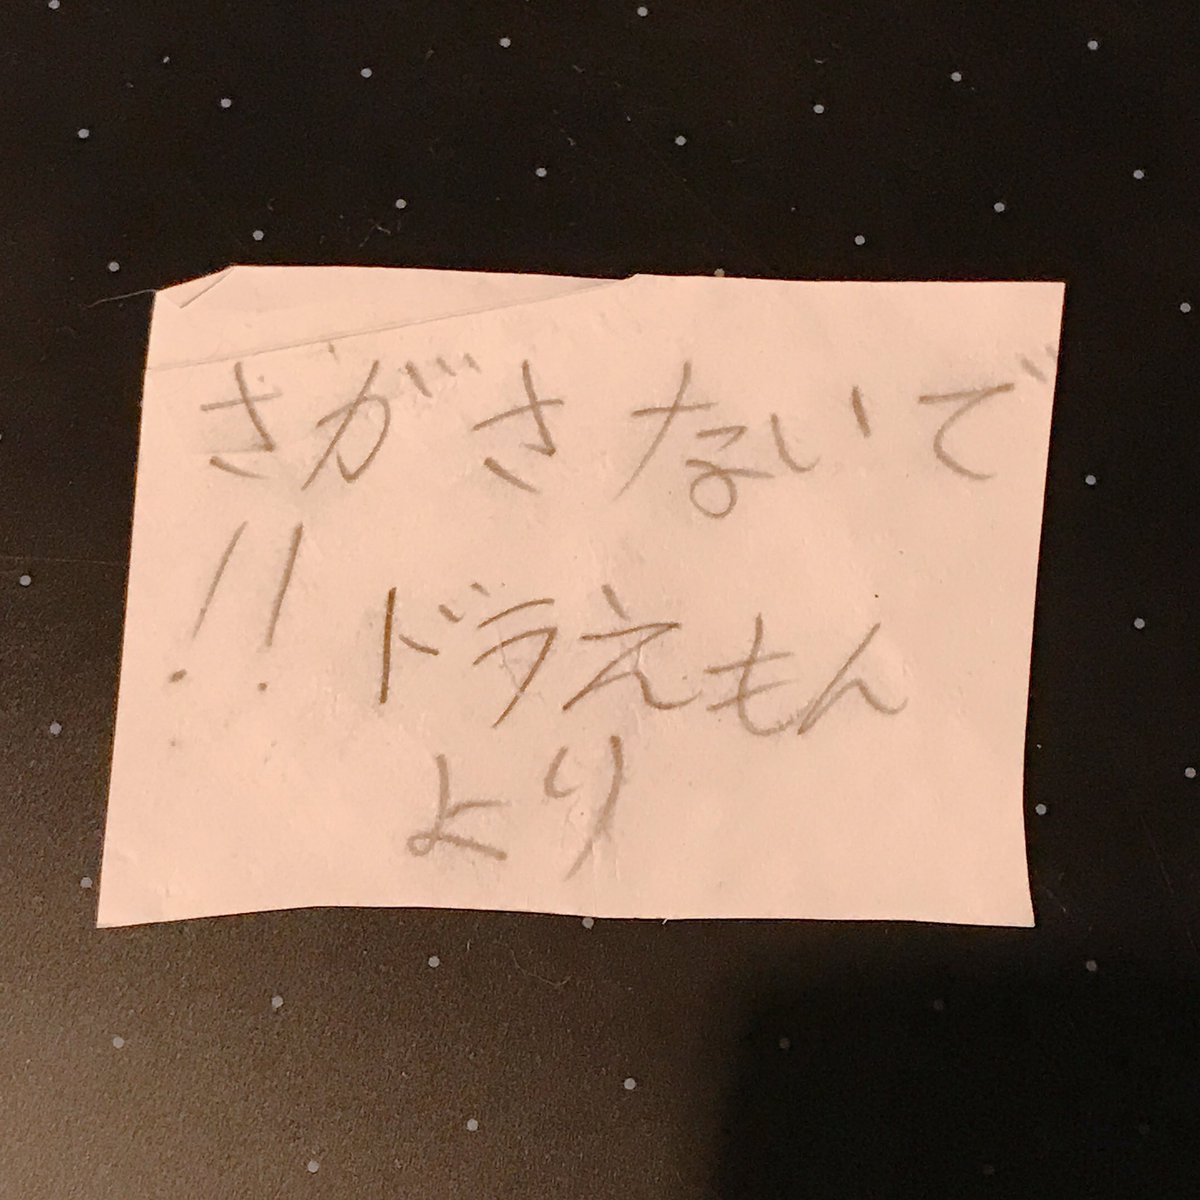 さがさないで
!! ドラえもん
より